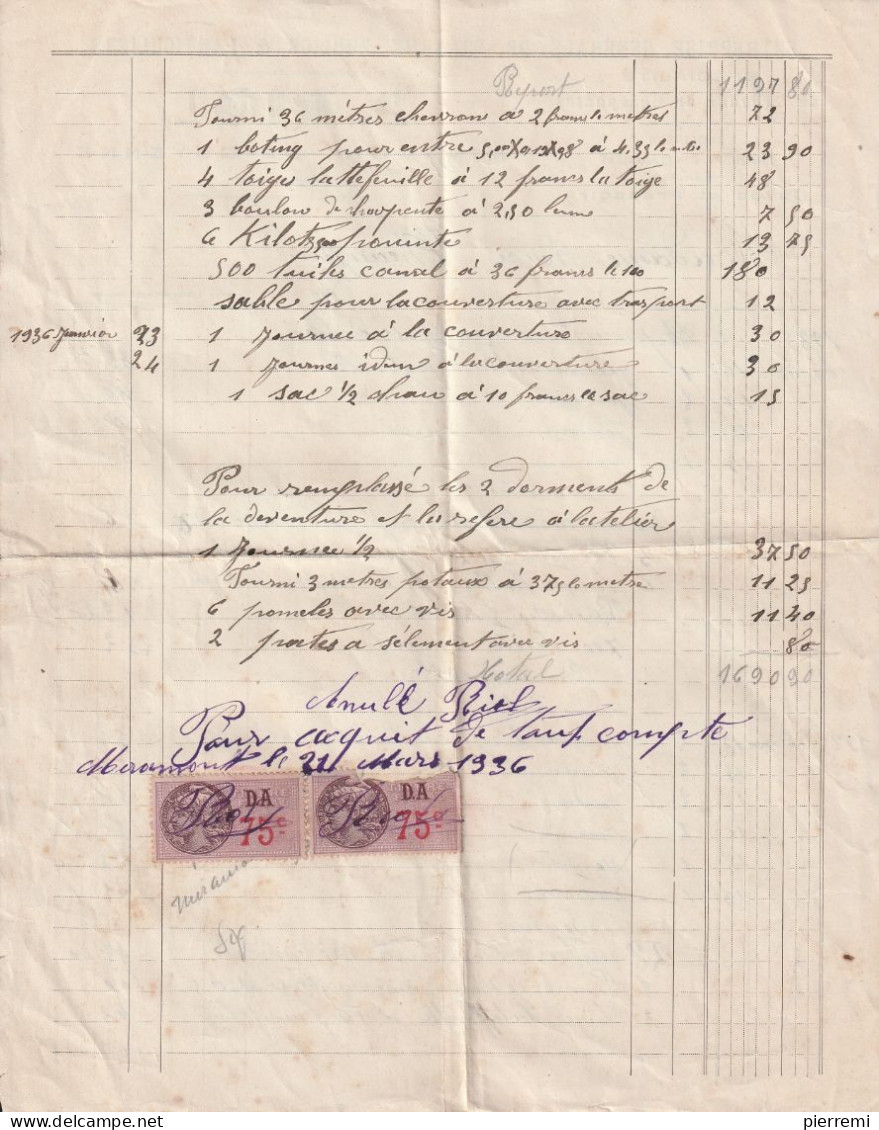 Report 1197 80
Fourni 36 mètres chevrons a 2 francs le metres 72
1 boting pour entre à 4.35 le 23 90
4 toiges lattefeuille à 12 francs la toige 48
3 boulon de charpente à 2,50 lune 7 50
6 Kilots pouinte 13 75
500 tuiles canal à 36 francs le 100 180
sable pour la couverture avec trasport 12
1936 Janvier 23 1 Journee à la couverture 30
24 1 Journee idem à la couverture 30
1 sac 1/2 chau à 10 francs le sac 15
Pour remplassé les 2 dorments de
la deventure et la refere à latelier
1 Journee 1/2 37 50
Fourni 3 metres potaux à 3 75 le metre 11 25
6 pomeles avec vis 11 40
2 pates a sélement avec vis 80
Total 1690 90
Annulé Riol
Pour acquit de tout compte
Miramont le 21 Mars 1936
DA DA
75c 75c
pierremi